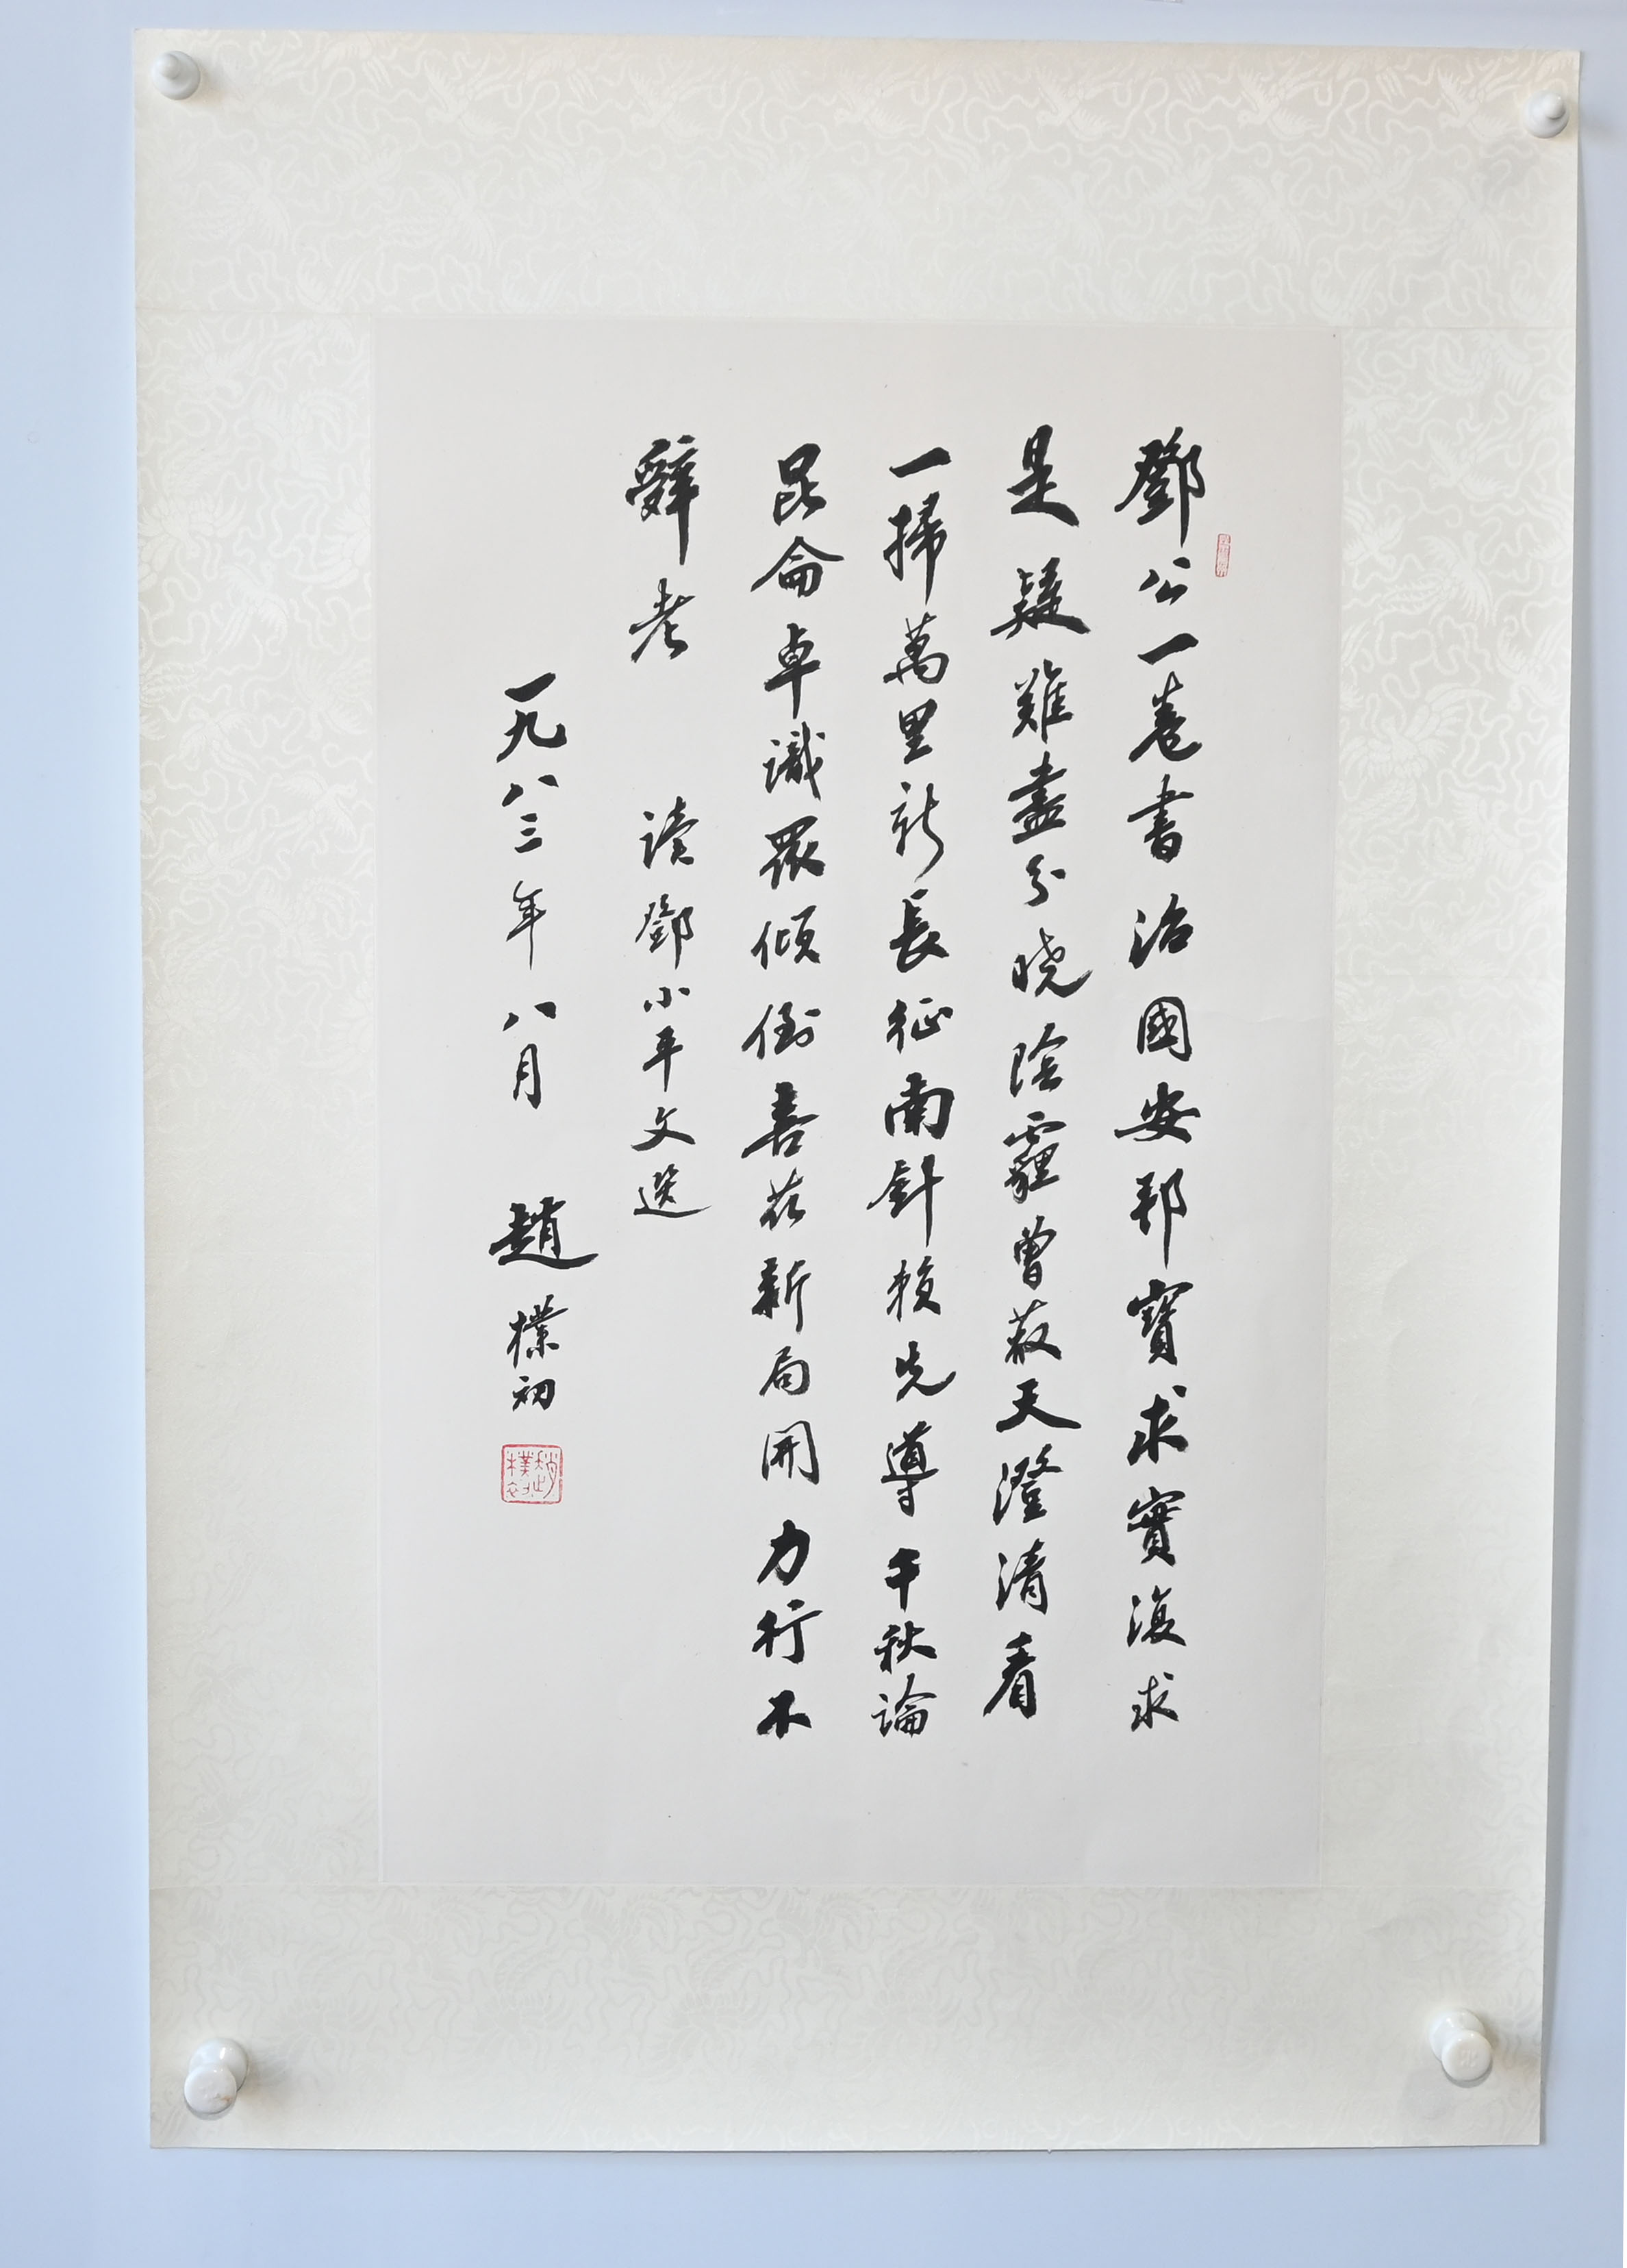 鄧公一卷書治國安邦寶求實復求
是疑難盡分曉陰霾曾蔽天澄清看
一掃萬里新長征南針賴先導千秋論
昆侖卓識眾傾倒喜茲新局開力行不
辭老 读鄧小平文選
一九八三年八月 趙樸初
趙樸初